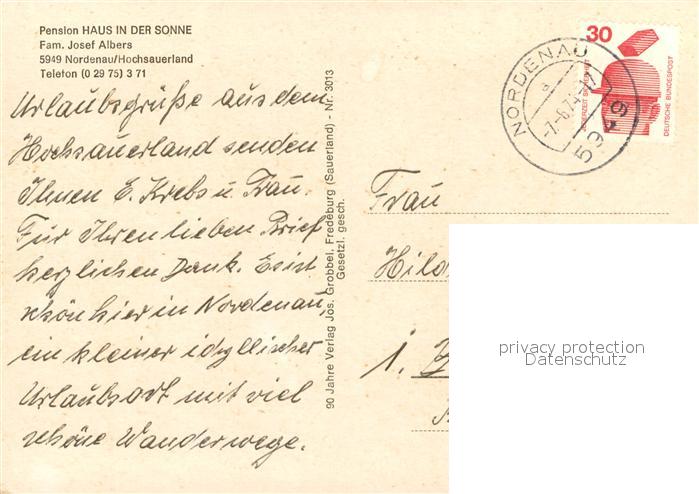 Pension HAUS IN DER SONNE
Fam. Josef Albers
5949 Nordenau/Hochsauerland
Telefon (0 29 75) 3 71
Urlaubsgrüße aus dem
Hochsauerland senden
Ihnen E. Krebs u. Frau.
Für Ihren lieben Brief
herzlichen Dank. Es ist
schön hier in Nordenau,
ein kleiner idyllischer
Urlaubsort mit viel
schöne Wanderwege.
90 Jahre Verlag Jos. Grobbel, Fredeburg (Sauerland) - Nr. 3013
Gesetzl. gesch.
NORDENAU
a
5949
30
JEDERZEIT SICHERHEIT
DEUTSCHE BUNDESPOST
Frau
Hild
i.
privacy protection
Datenschutz